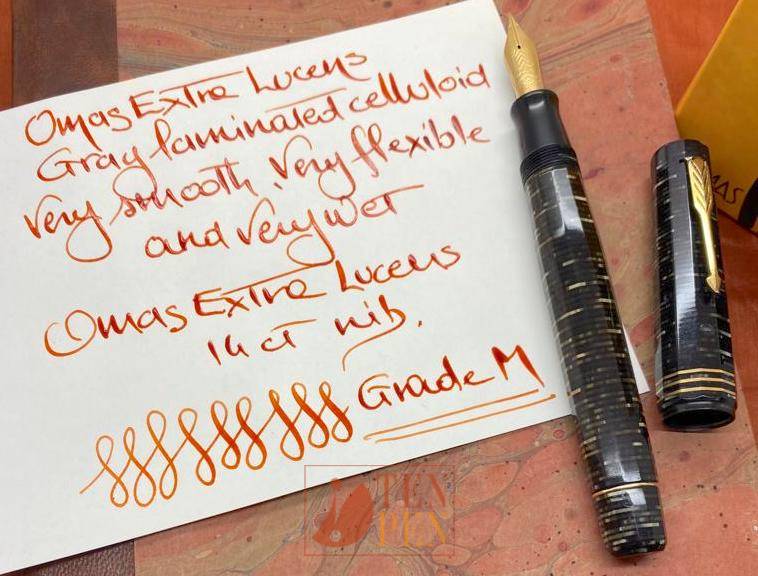 Omas Extra Lucens
Gray laminated celluloid
very smooth, very flexible
and very wet
Omas Extra Lucens
14 ct nib.
Grade M
MAS
PEN
PEN